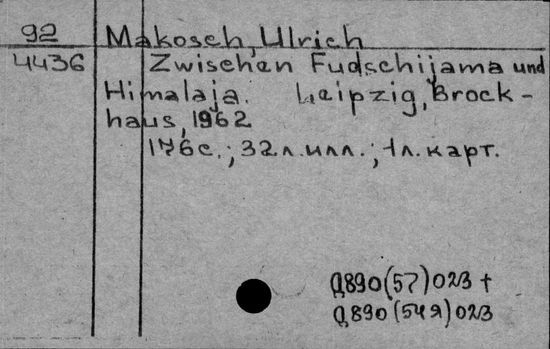 92 Makosch, Ulrich
4436 Zwischen Fudschijama und
Himalaja. Leipzig, Brock-
haus, 1962
176с.; 32л.илл.; 1л.карт.
Д890(57)023 +
Д890(54Я)023